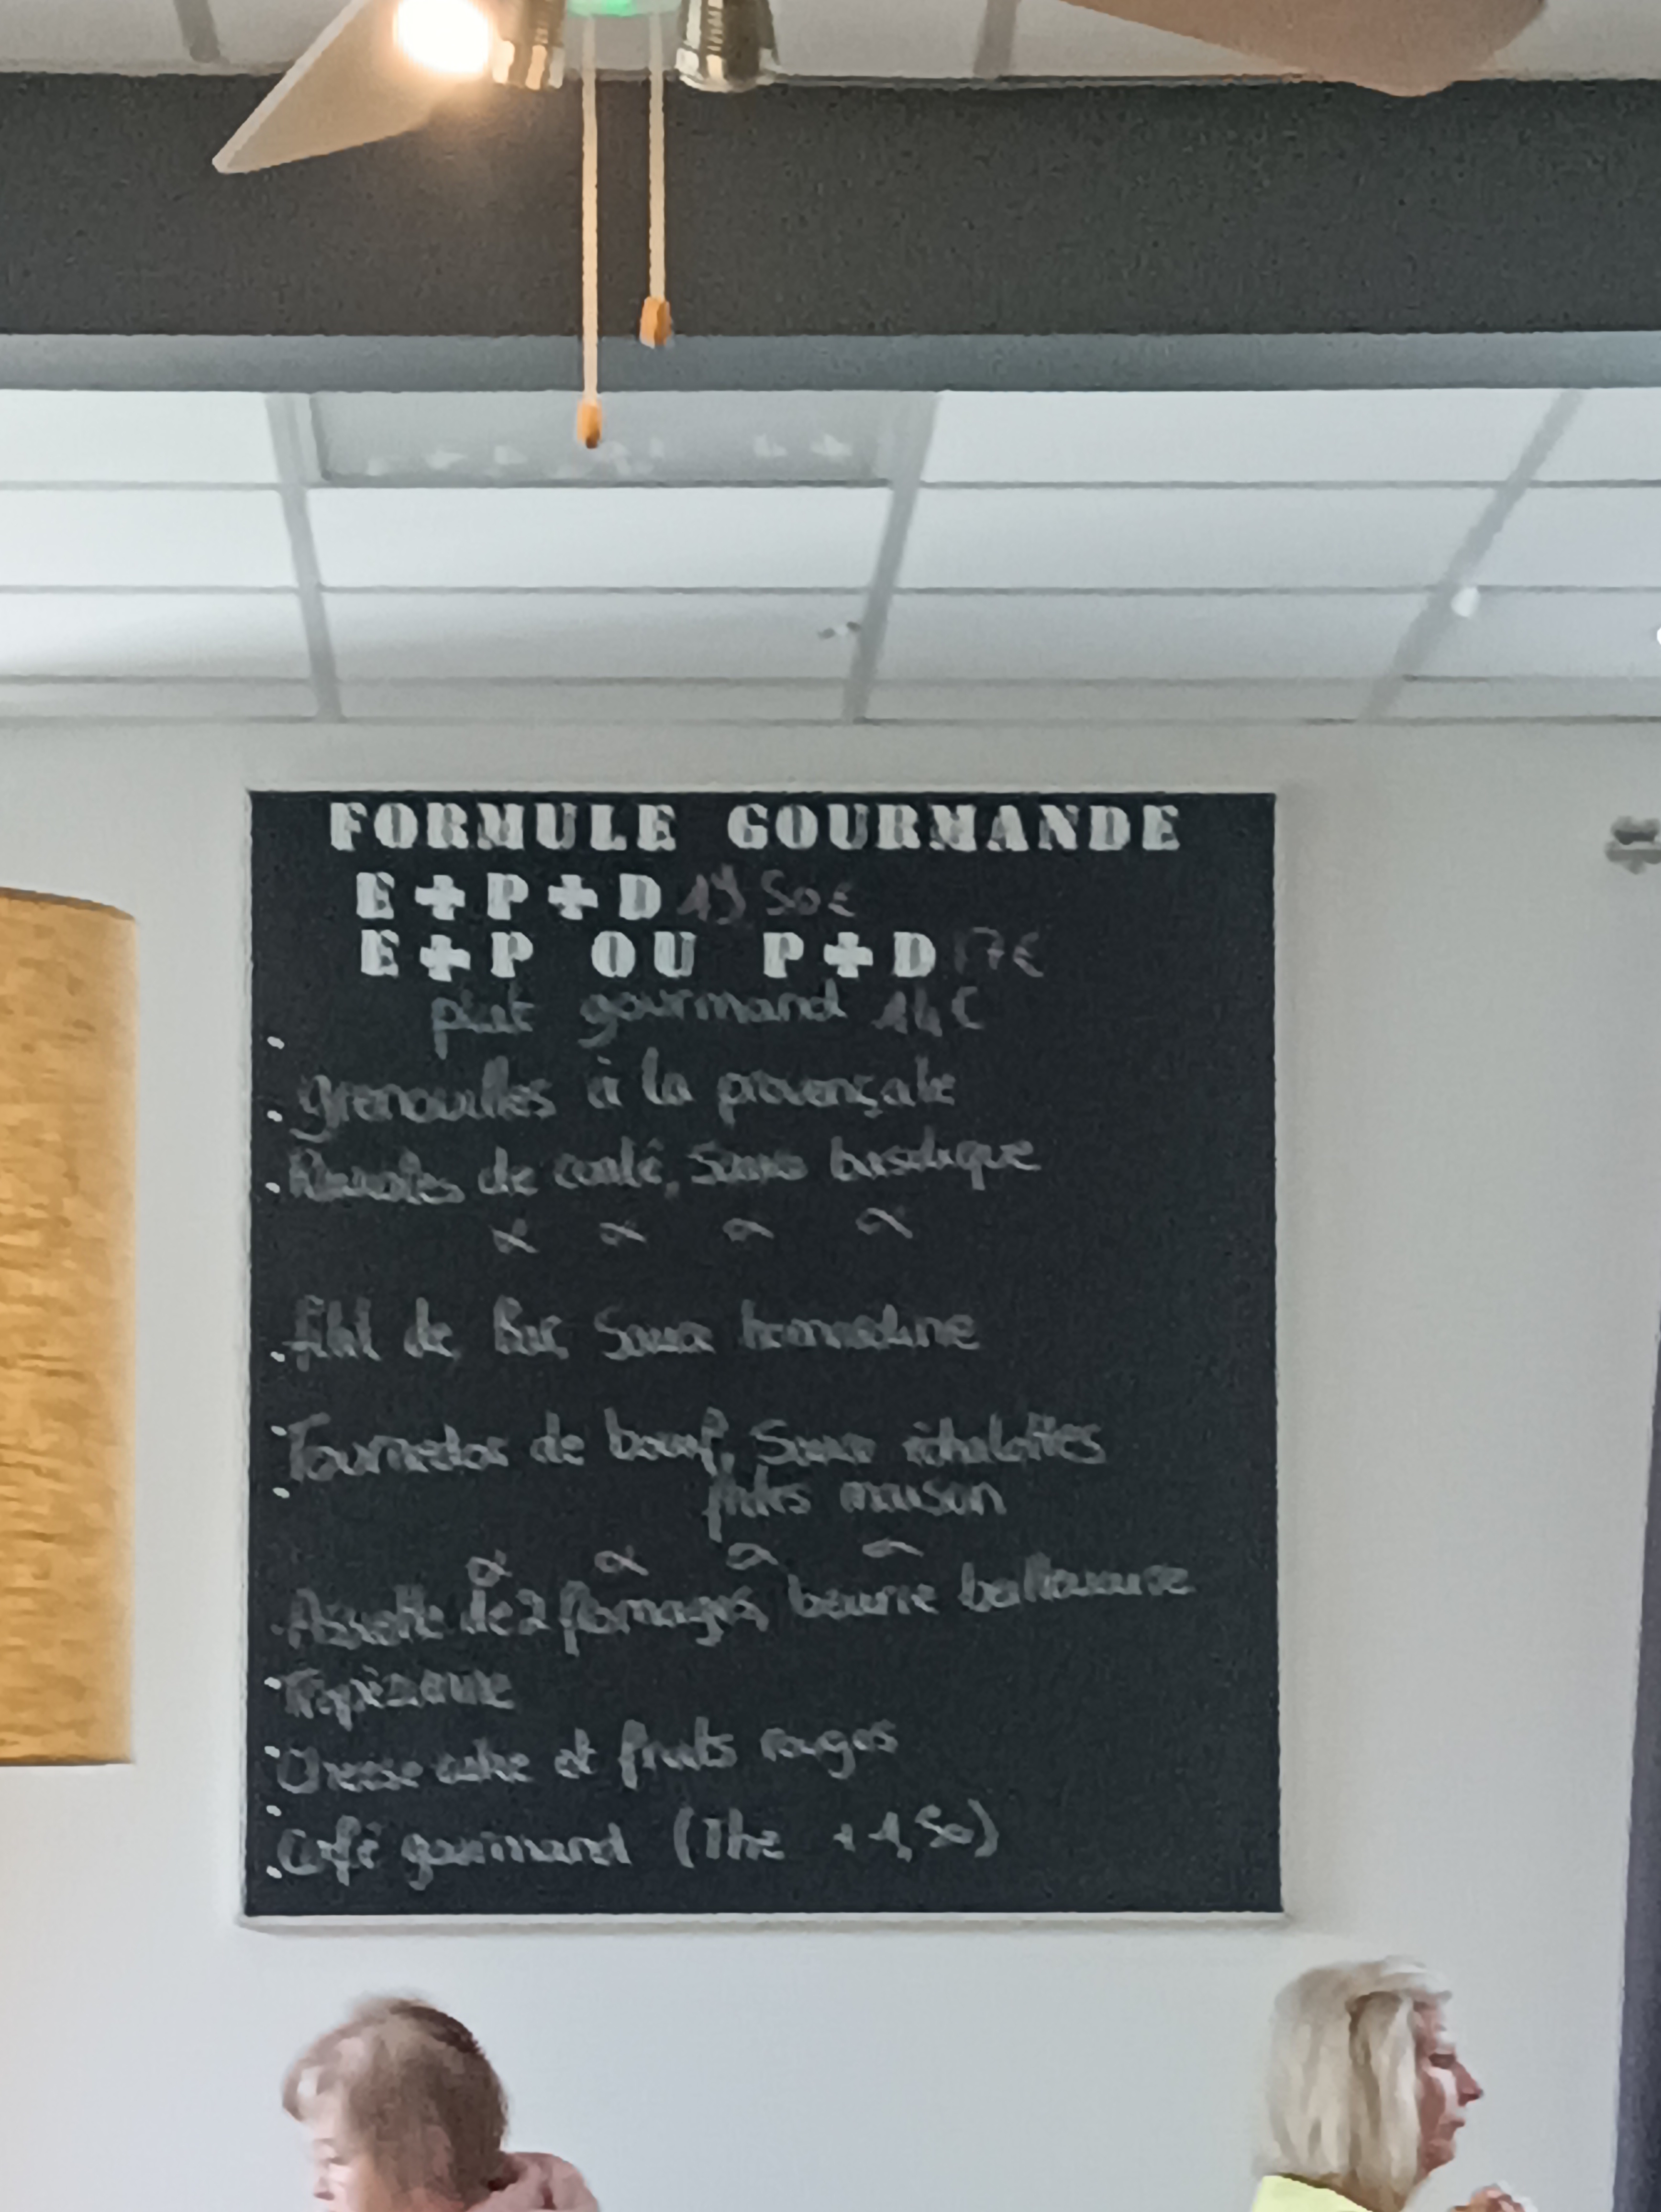 FORMULE GOURMANDE
E+P+D 19,50€
E+P OU P+D 17€
plat gourmand 14€
. grenouilles à la provençale
. de comté, sauce basilique
. filet de Bar, Sauce homardine
. Tournedos de bœuf, Sauce échalottes
frites maison
. Assiette de 2 fromages, beurre
. Tropézienne
. Cheese cake et fruits rouges
. Café gourmand (Thé +1,50)